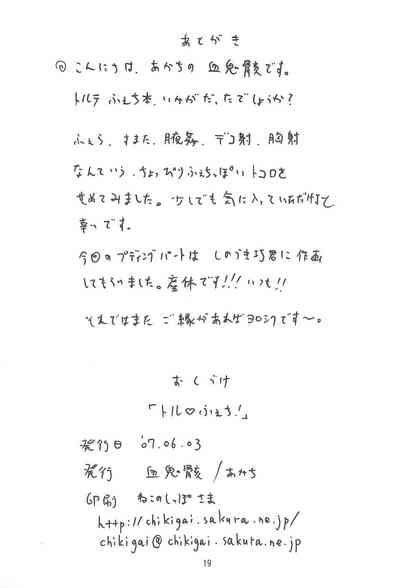 あとがき
◎ こんにちは、あかちの血鬼骸です。
トルテ ふぇち本、いかがだったでしょうか?
ふぇら、すまた、腋姦、デコ射、胸射
なんていう、ちょっぴりふぇちっぽいトコロを
せめてみました。少しでも気に入っていただけると
幸いです。
今回のプディングパートは しのづき巧君に作画
してもらいました。産休です!!! いつも!!
それではまた ご縁があれば ヨロシクです〜。
おしづけ
「トル♡ふぇち!」
発行日 '07.06.03
発行 血鬼骸/あかち
印刷 ねこのしっぽさま
http://chikigai.sakura.ne.jp/
chikigai@chikigai.sakura.ne.jp
19